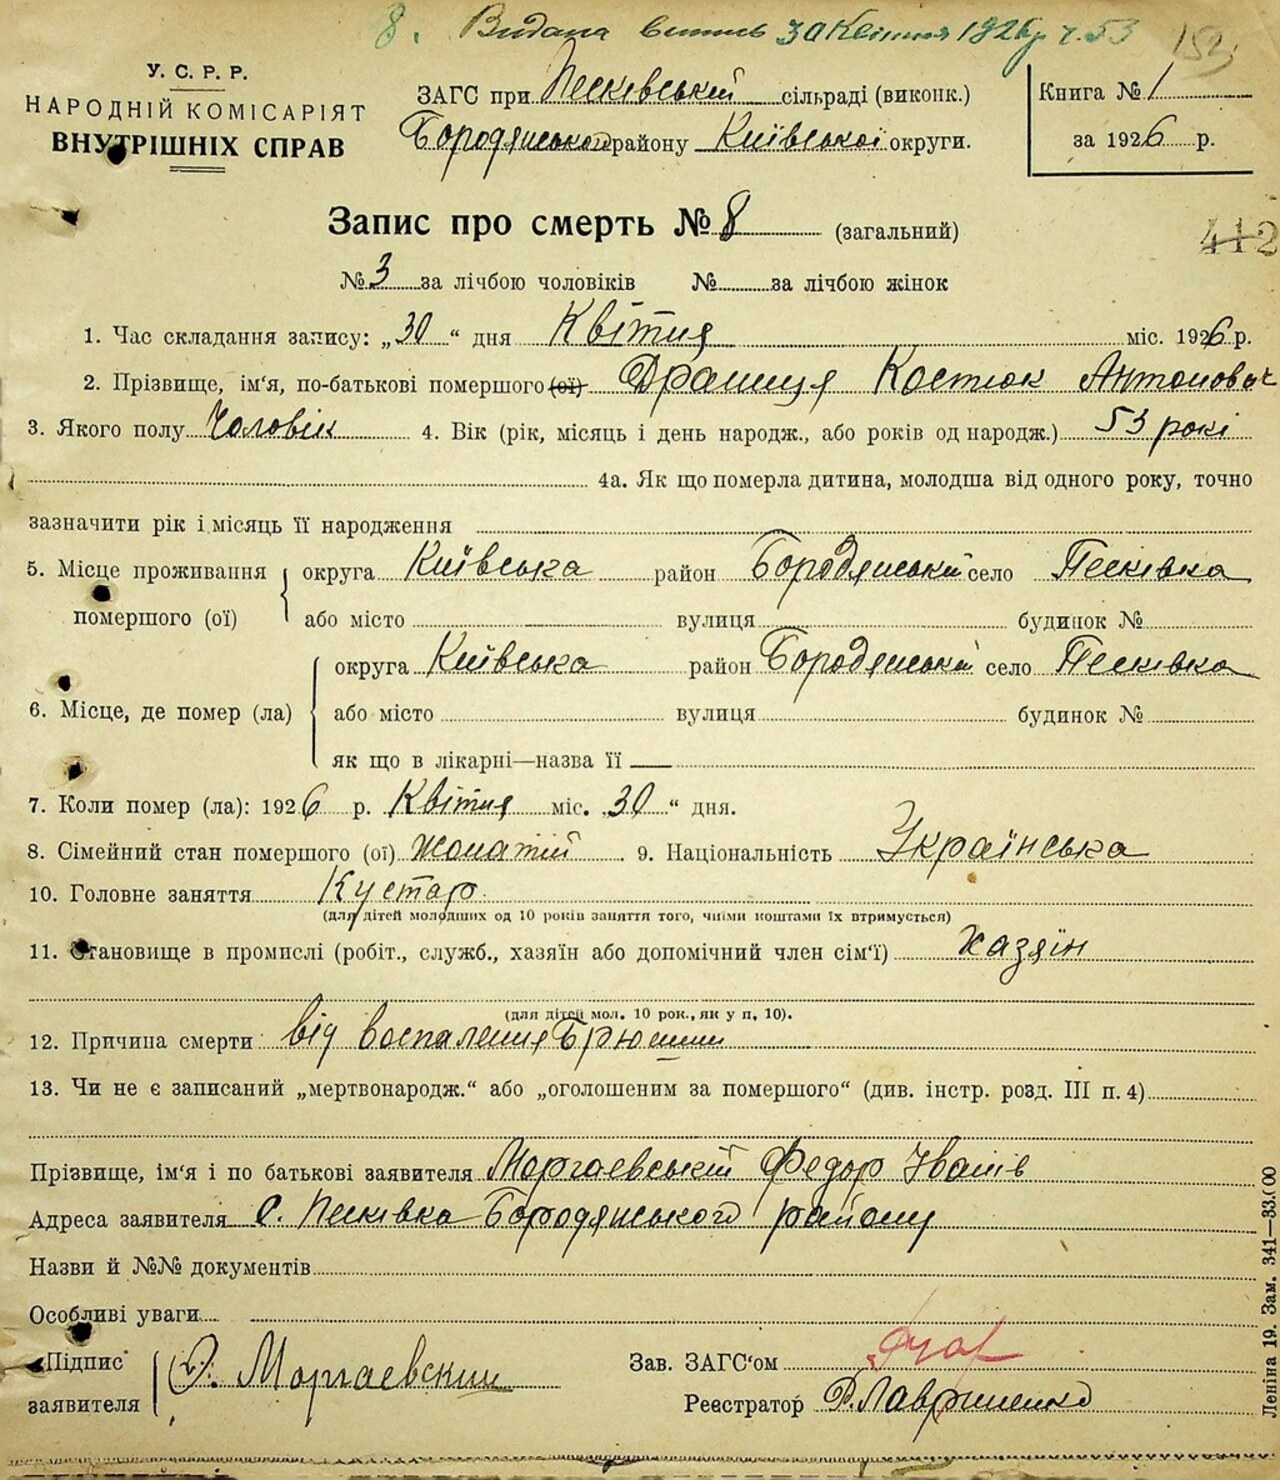 8. Видана витпсь 30 Квітня 1926 р ч. 53
152
У. С. Р. Р.
НАРОДНІЙ КОМІСАРІЯТ
ВНУТРІШНІХ СПРАВ
ЗАГС при Песківській сільраді (виконк.)
Бородянській району Київської округи.
Книга № 1
за 1926 р.
Запис про смерть № 8 (загальний)
412
№ 3 за лічбою чоловіків № за лічбою жінок
1. Час складання запису: „30“ дня Квітня міс. 1926 р.
2. Прізвище, ім‘я, по-батькові помершого (ої) Драпиця Костюк Антонович
3. Якого полу Чоловік 4. Вік (рік, місяць і день народж., або років од народж.) 53 рокі
4а. Як що померла дитина, молодша від одного року, точно
зазначити рік і місяць її народження
5. Місце проживання помершого (ої) округа Київська район Бородянській село Песківка
або місто вулиця будинок №
6. Місце, де помер (ла) округа Київська район Бородянській село Песківка
або місто вулиця будинок №
як що в лікарні—назва її
7. Коли помер (ла): 1926 р. Квітня міс. „30“ дня.
8. Сімейний стан помершого (ої) жонатій 9. Національність Українська
10. Головне заняття Кустар.
(для дітей молодших од 10 років заняття того, чиїми коштами їх втримується)
11. Становище в промислі (робіт., служб., хазяїн або допомічний член сім‘ї) Хазяїн
(для дітей мол. 10 рок., як у п. 10).
12. Причина смерти від воспаления Брюшини
13. Чи не є записаний „мертвонародж.“ або „оголошеним за помершого“ (див. інстр. розд. III п. 4)
Прізвище, ім‘я і по батькові заявителя Моргаевській Федор Іванів
Адреса заявителя С. Песківка Бородянського району
Назви й №№ документів
Особливі уваги
Підпис заявителя Моргаевский
Зав. ЗАГС‘ом
Реєстратор Лавриненко
Леніна 19. Зам. 341—33.000